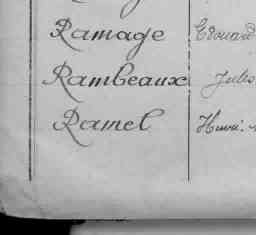 Ramage Edouard
Rambeaux Jules
Ramel Henri